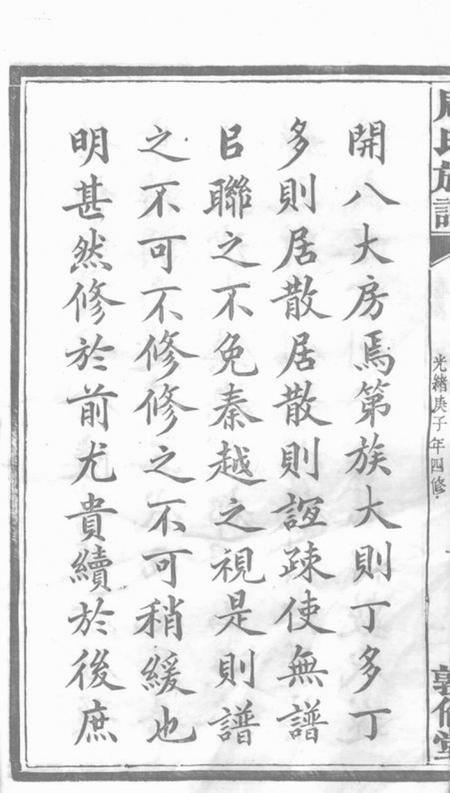 周氏族譜
光緒庚子年四修
開八大房焉第族大則丁多丁
多則居散居散則誼疎使無譜
㠯聯之不免秦越之視是則譜
之不可不修修之不可稍緩也
明甚然修於前尤貴續於後庶